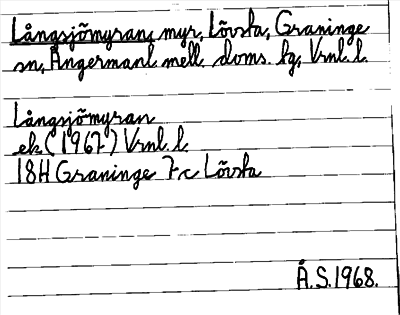 Långsjömyran, myr, Lövsta, Graninge
sn, Ångermanl. mell. doms. hg, Vrnl. l.
Långsjömyran
ek (1967) Vrnl. l.
18H Graninge 7c Lövsta
Å.S. 1968.